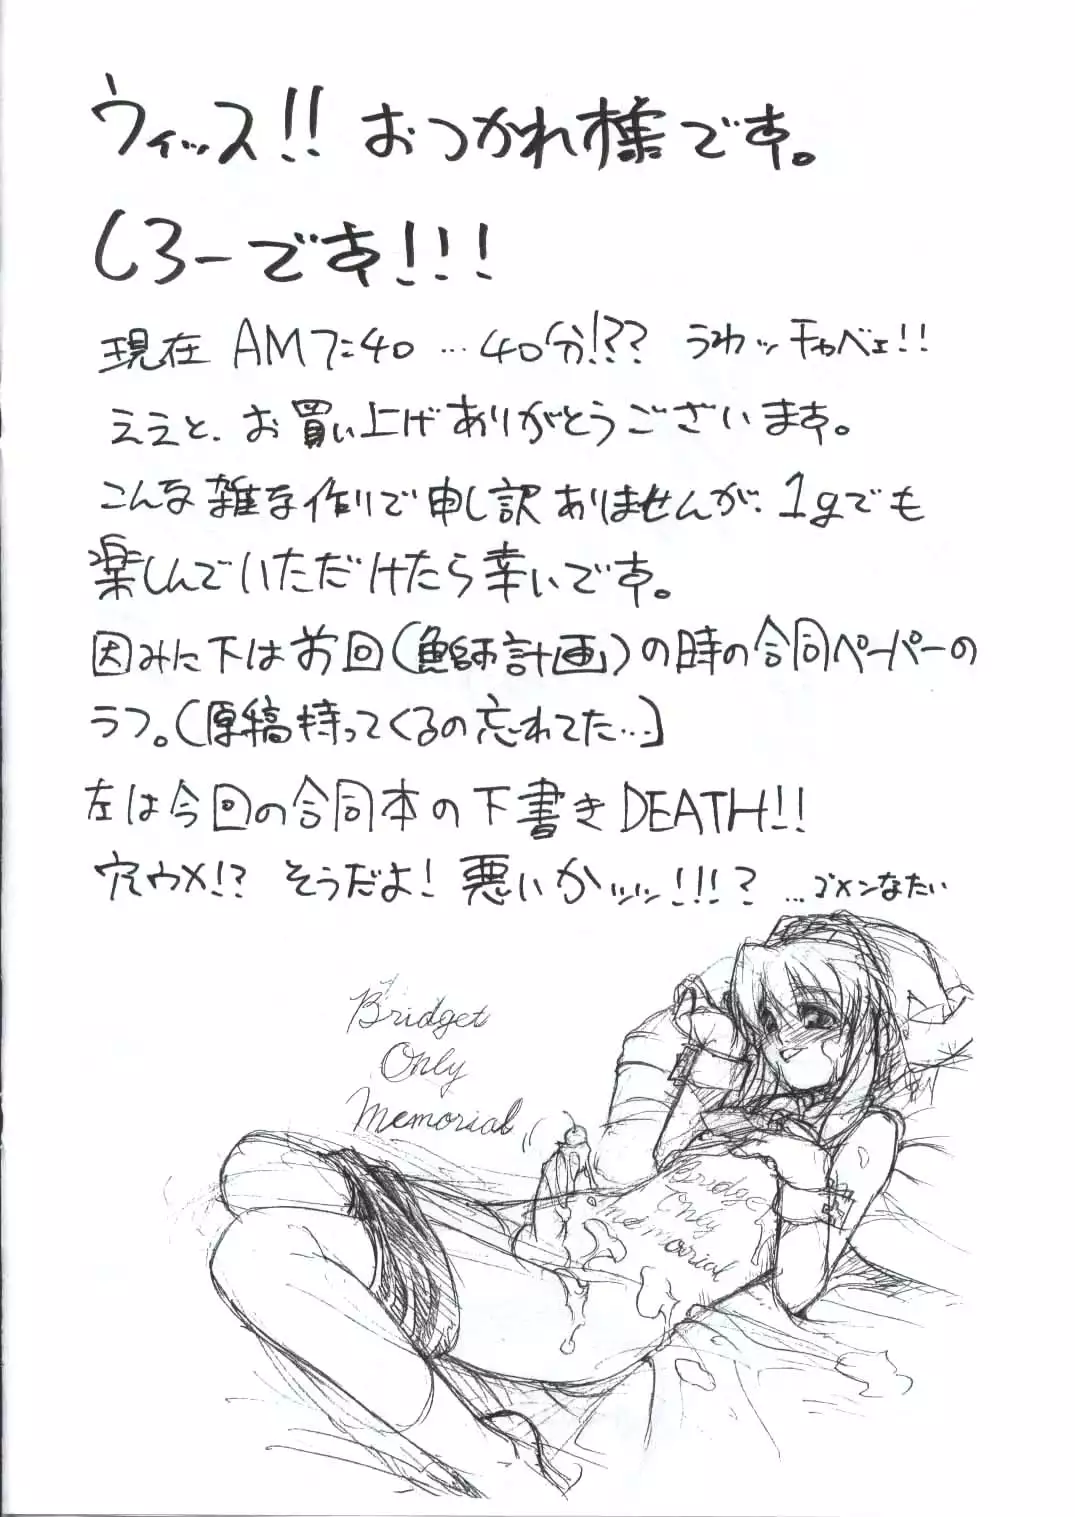 ウィッス!! おつかれ様です。
しろーです!!!
現在 AM7:40 …40分!?? うわッチャベェ!!
ええと、お買い上げありがとうございます。
こんな雑な作りで申し訳ありませんが、1gでも
楽しんでいただけたら幸いです。
因みに下は前回(鮪師計画)の時の合同ペーパーの
ラフ。(原稿持ってくるの忘れてた…)
左は今回の合同本の下書きDEATH!!
穴ウメ!? そうだよ! 悪いかッッッ!!!? …ゴメンなたい
Bridget
Only
Memorial
Bridget
Only
memorial